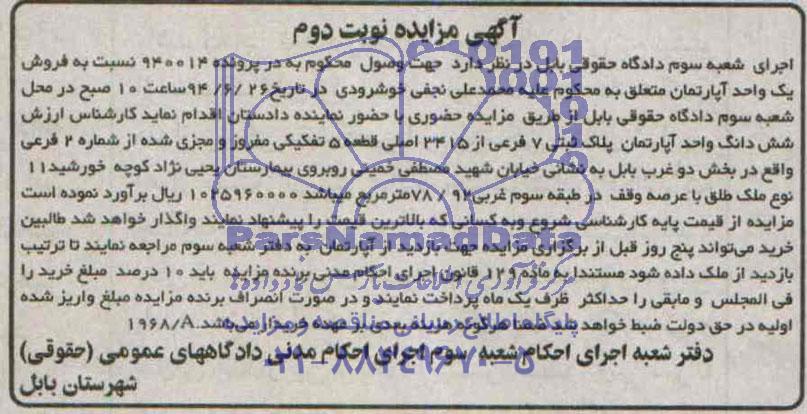 آگهی مزایده نوبت دوم
اجرای شعبه سوم دادگاه حقوقی بابل در نظر دارد جهت وصول محکوم به در پرونده ۹۴۰۰۱۴ نسبت به فروش
یک واحد آپارتمان متعلق به محکوم علیه محمدعلی نجفی خوشرودی در تاریخ ۲۶ /۶ /۹۴ ساعت ۱۰ صبح در محل
شعبه سوم دادگاه حقوقی بابل از طریق مزایده حضوری با حضور نماینده دادستان اقدام نماید کارشناس ارزش
شش دانگ واحد آپارتمان پلاک ثبتی ۷ فرعی از ۳۴۱۵ اصلی قطعه ۵ تفکیکی مفروز و مجزی شده از شماره ۲ فرعی
واقع در بخش دو غرب بابل به نشانی خیابان شهید مصطفی خمینی روبروی بیمارستان یحیی نژاد کوچه خورشید۱۱
نوع ملک طلق با عرصه وقف در طبقه سوم غربی ۷۸/۹۲مترمربع میباشد ۱۰۲۵۹۶۰۰۰۰ ریال برآورد نموده است
مزایده از قیمت پایه کارشناسی شروع وبه کسانی که بالاترین قیمت را پیشنهاد نمایند واگذار خواهد شد طالبین
خرید می‌تواند پنج روز قبل از برگزاری مزایده جهت بازدید از آپارتمان به دفتر شعبه سوم مراجعه نمایند تا ترتیب
بازدید از ملک داده شود مستندا به ماده ۱۲۹ قانون اجرای احکام مدنی برنده مزایده باید ۱۰ درصد مبلغ خرید را
فی المجلس و مابقی را حداکثر ظرف یک ماه پرداخت نمایند و در صورت انصراف برنده مزایده مبلغ واریز شده
اولیه در حق دولت ضبط خواهد شد ضمنا هرگونه هزینه بعدی بر عهده خریدار می‌باشد. ۱۹۶۸/A
دفتر شعبه اجرای احکام شعبه سوم اجرای احکام مدنی دادگاههای عمومی (حقوقی)
شهرستان بابل
ParsNamadData
پایگاه اطلاع رسانی مناقصه و مزایده
۰۲۱-۸۸۳۴۹۶۷۰-۵